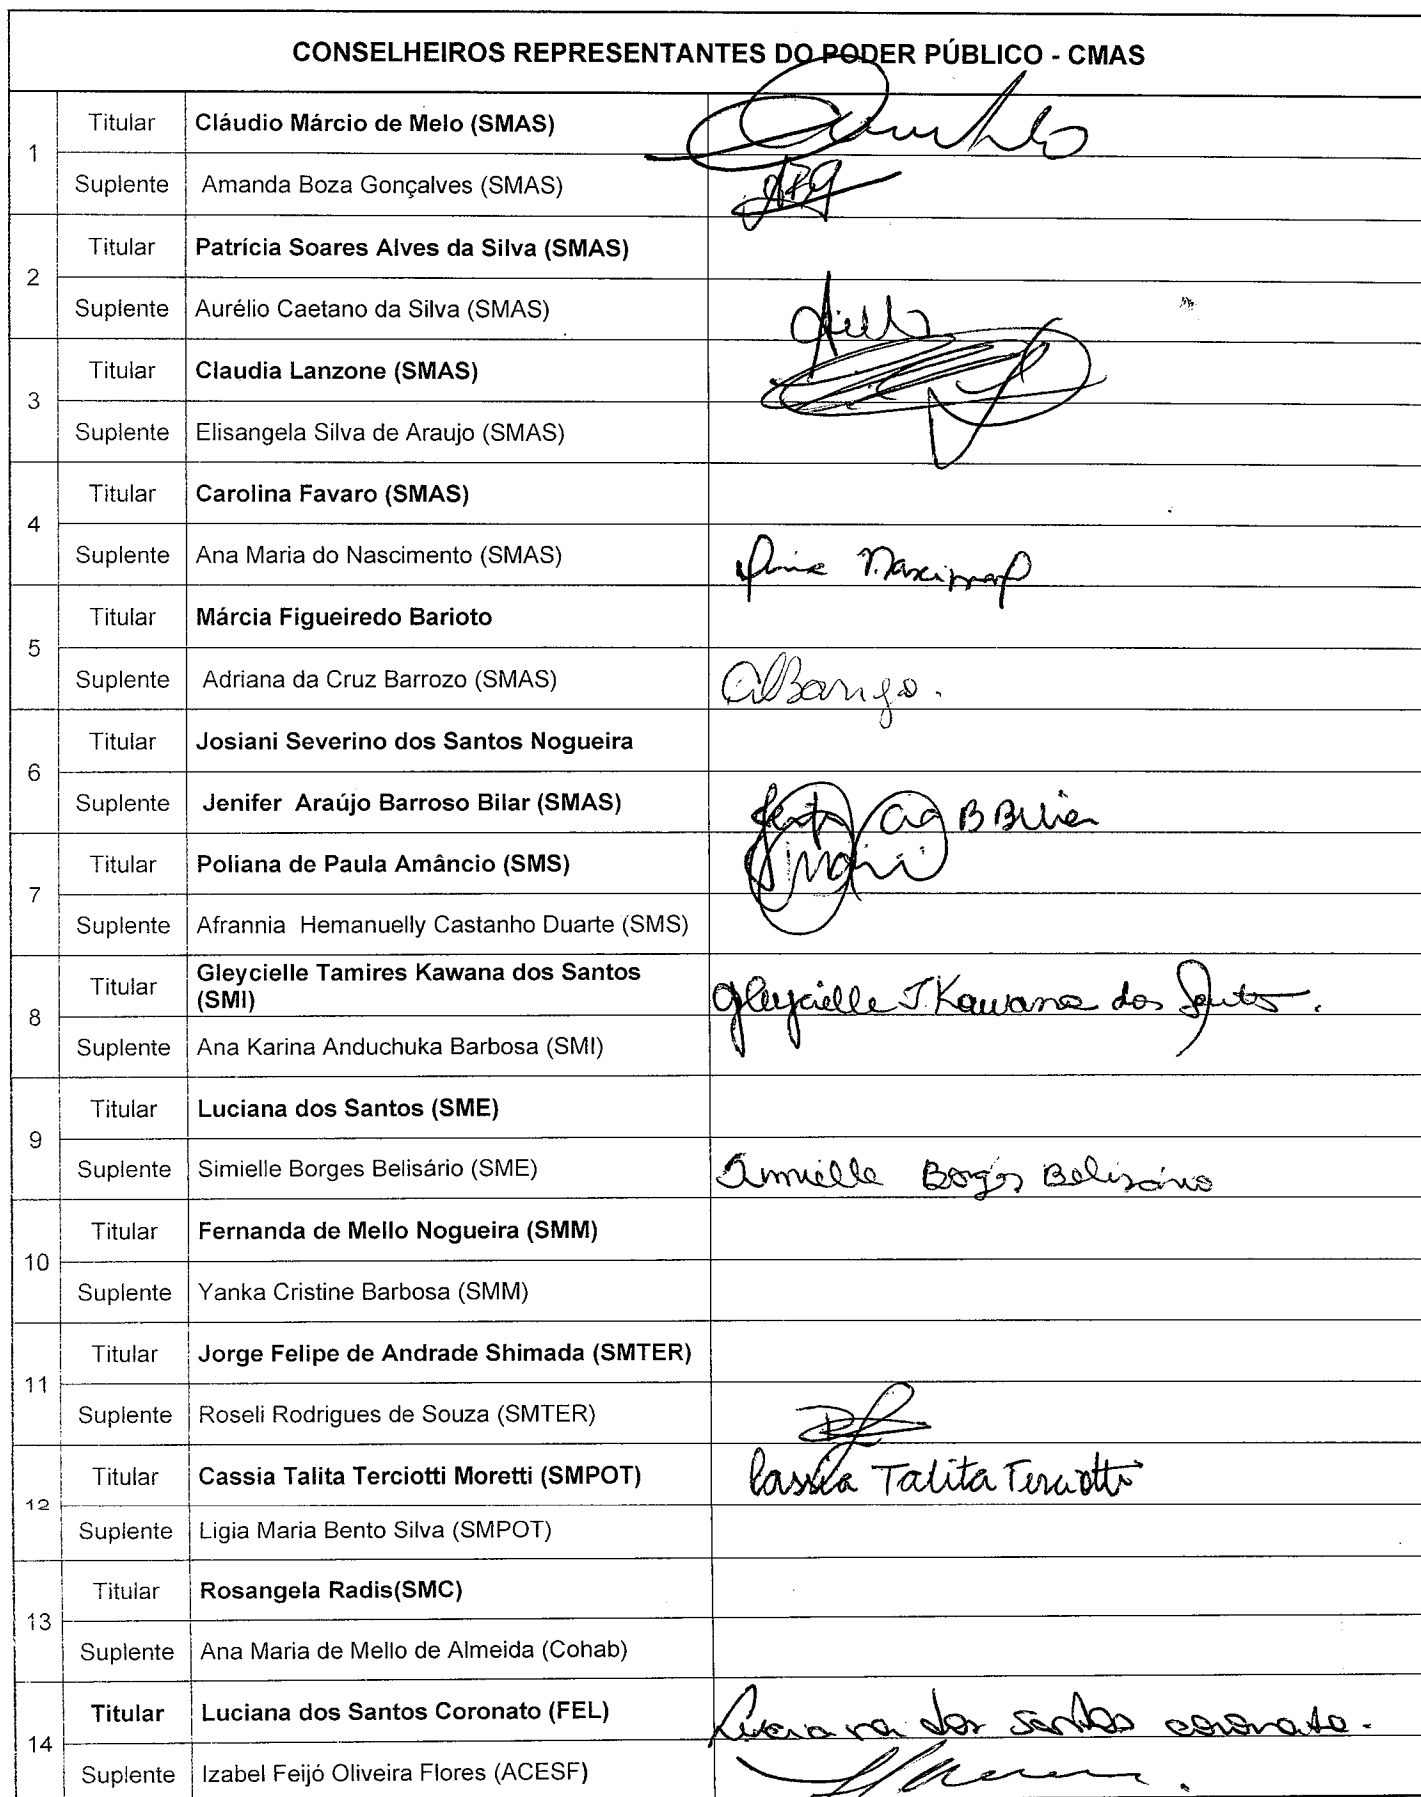 CONSELHEIROS REPRESENTANTES DO PODER PÚBLICO - CMAS
1
Titular Cláudio Márcio de Melo (SMAS)
Suplente Amanda Boza Gonçalves (SMAS)
2
Titular Patrícia Soares Alves da Silva (SMAS)
Suplente Aurélio Caetano da Silva (SMAS)
3
Titular Claudia Lanzone (SMAS)
Suplente Elisangela Silva de Araujo (SMAS)
4
Titular Carolina Favaro (SMAS)
Suplente Ana Maria do Nascimento (SMAS)
5
Titular Márcia Figueiredo Barioto
Suplente Adriana da Cruz Barrozo (SMAS)
6
Titular Josiani Severino dos Santos Nogueira
Suplente Jenifer Araújo Barroso Bilar (SMAS)
7
Titular Poliana de Paula Amâncio (SMS)
Suplente Afrannia Hemanuelly Castanho Duarte (SMS)
8
Titular Gleycielle Tamires Kawana dos Santos
(SMI) Gleycielle T. Kawana dos Santos.
Suplente Ana Karina Anduchuka Barbosa (SMI)
9
Titular Luciana dos Santos (SME)
Suplente Simielle Borges Belisário (SME) Simielle Borges Belisário
10
Titular Fernanda de Mello Nogueira (SMM)
Suplente Yanka Cristine Barbosa (SMM)
11
Titular Jorge Felipe de Andrade Shimada (SMTER)
Suplente Roseli Rodrigues de Souza (SMTER)
12
Titular Cassia Talita Terciotti Moretti (SMPOT) Cassia Talita Terciotti
Suplente Ligia Maria Bento Silva (SMPOT)
13
Titular Rosangela Radis(SMC)
Suplente Ana Maria de Mello de Almeida (Cohab)
14
Titular Luciana dos Santos Coronato (FEL) Luciana dos santos coronato.
Suplente Izabel Feijó Oliveira Flores (ACESF)